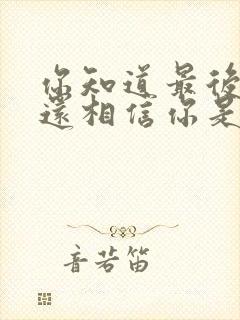 你知道最後
還相信你是
音若笛